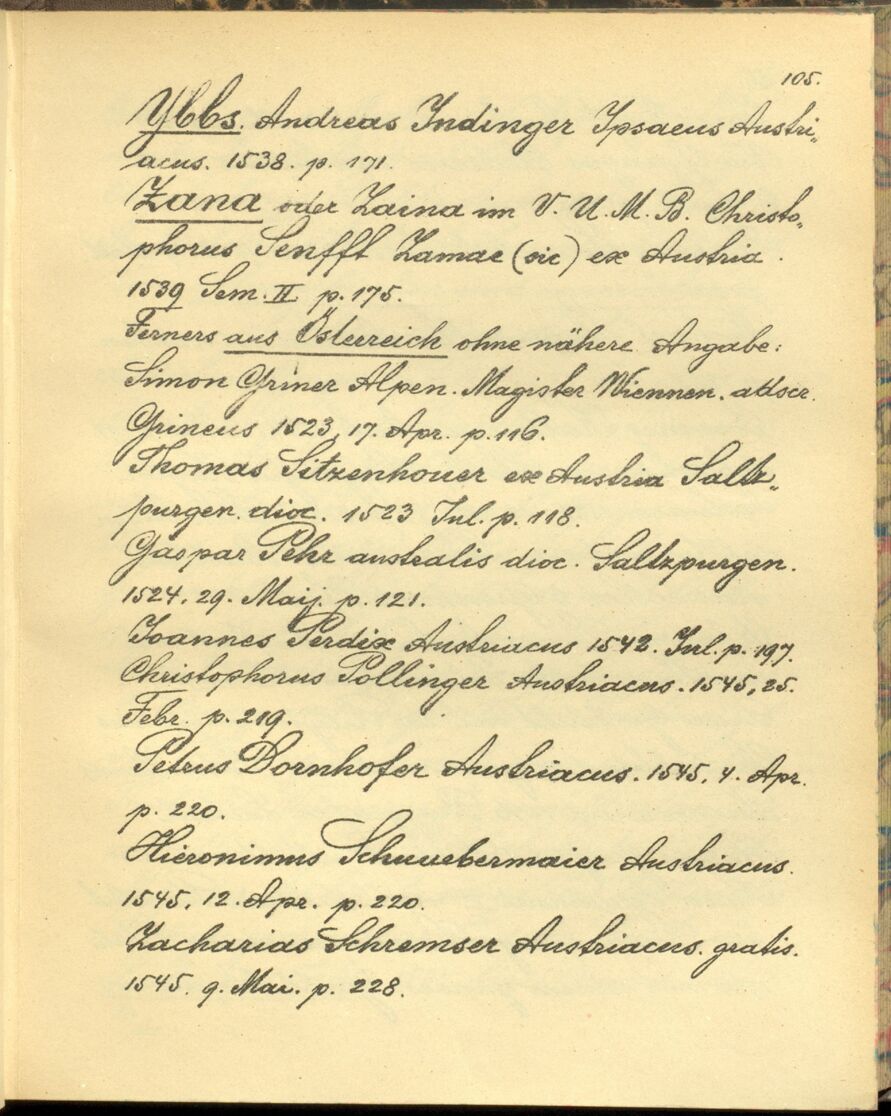 105.
Ybbs. Andreas Indinger Ipsaeus Austri„
acus. 1538. p. 171.
Zana oder Zaina im V. U. M. B. Christo„
phorus Senfft Zamae (sic) ex Austria.
1539 Sem. II p. 175.
Ferners aus Österreich ohne nähere Angabe:
Simon Griner Alpen. Magister Wiennen. adscr.
Grineus 1523, 17. Apr. p. 116.
Thomas Sitzenhouer ex Austria Saltz„
purgen. dioc. 1523 Jul. p. 118.
Gaspar Pehr australis dioc. Saltzpurgen.
1524. 29. Maij. p. 121.
Joannes Perdix Austriacus 1542. Jul. p. 197.
Christophorus Pollinger Austriacus. 1545, 25.
Febr. p. 219.
Petrus Dornhofer Austriacus. 1545. 4. Apr.
p. 220.
Hieronimus Schuuebermaier Austriacus.
1545. 12. Apr. p. 220.
Zacharias Schremser Austriacus. gratis.
1545. 9. Mai. p. 228.